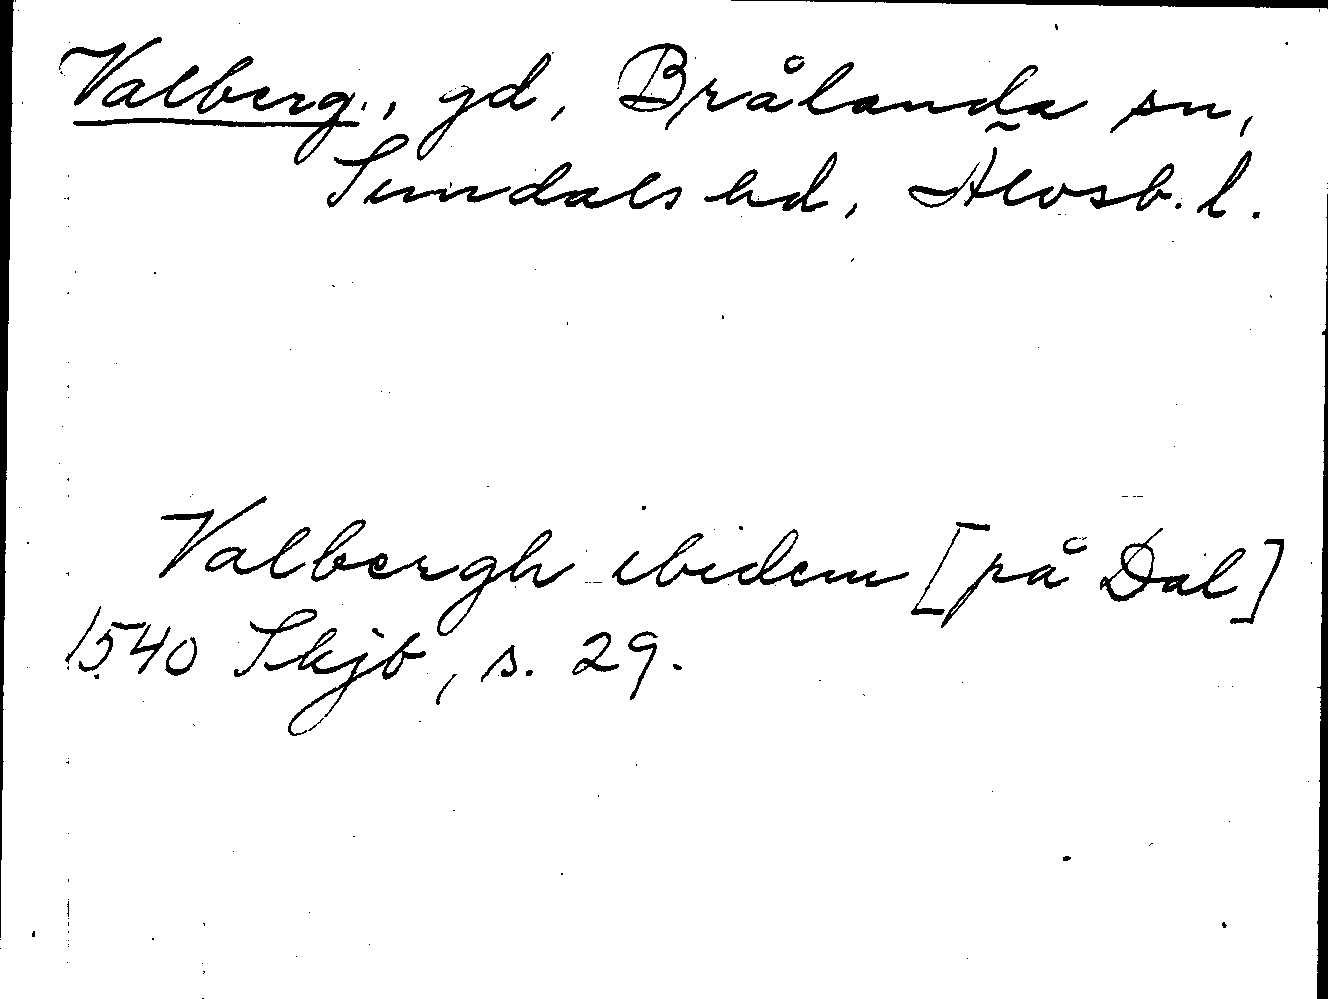 Valberg, gd, Brålanda sn,
Sundals hd, Älvsb. l.
Valbergh ibidem [på Dal]
1540 Skjb, s. 29.